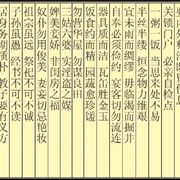 关锁门户 必亲自检点
一粥一饭 当思来处不易
半丝半缕 恒念物力维艰
宜未雨而绸缪 毋临渴而掘井
自奉必须俭约 宴客切勿流连
器具质而洁 瓦缶胜金玉
饭食约而精 园蔬愈珍馐
勿营华屋 勿谋良田
三姑六婆 实淫盗之媒
婢美妾娇 非闺房之福
奴仆勿用俊美 妻妾切忌艳妆
祖宗虽远 祭祀不可不诚
子孙虽愚 经书不可不读
居身务期质朴 教子要有义方